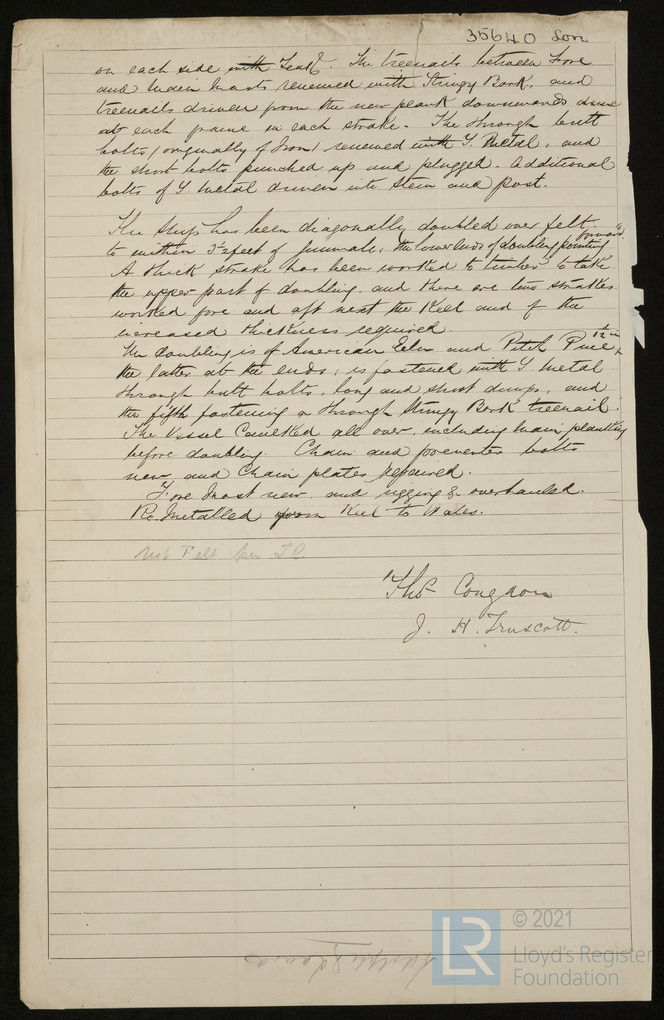 35640 Lon
on each side with Teak. The treenails between Fore
and Main Masts renewed with Stringy Bark, and
treenails driven from the new plank downwards
at each frame in each strake. The through butt
bolts (originally of Iron) renewed with Y. Metal, and
the short bolts punched up and plugged. Additional
bolts of Y. Metal driven into Stem and post.
The Ship has been diagonally doubled over felt
to within feet of gunwale, the lower ends of doubling pointing forward.
A thick strake has been worked to timber to take
the upper part of doubling, and there are two strakes
worked fore and aft next the Keel and of the
increased thickness required.
The doubling is of American Elm and Pitch Pine
the latter at the ends, is fastened with Y. Metal
through butt bolts, long and short dumps, and
the fifth fastening a through Stringy Bark treenail.
The Vessel Caulked all over, including Main planking
before doubling. Chain and preventer bolts
new and Chain plates repaired.
Fore Mast new and rigging &c overhauled.
Re-Metalled from Keel to Wales.
Not Felt per
Thos Congdon
J. H. Truscott
LR
© 2021
Lloyd's Register
Foundation